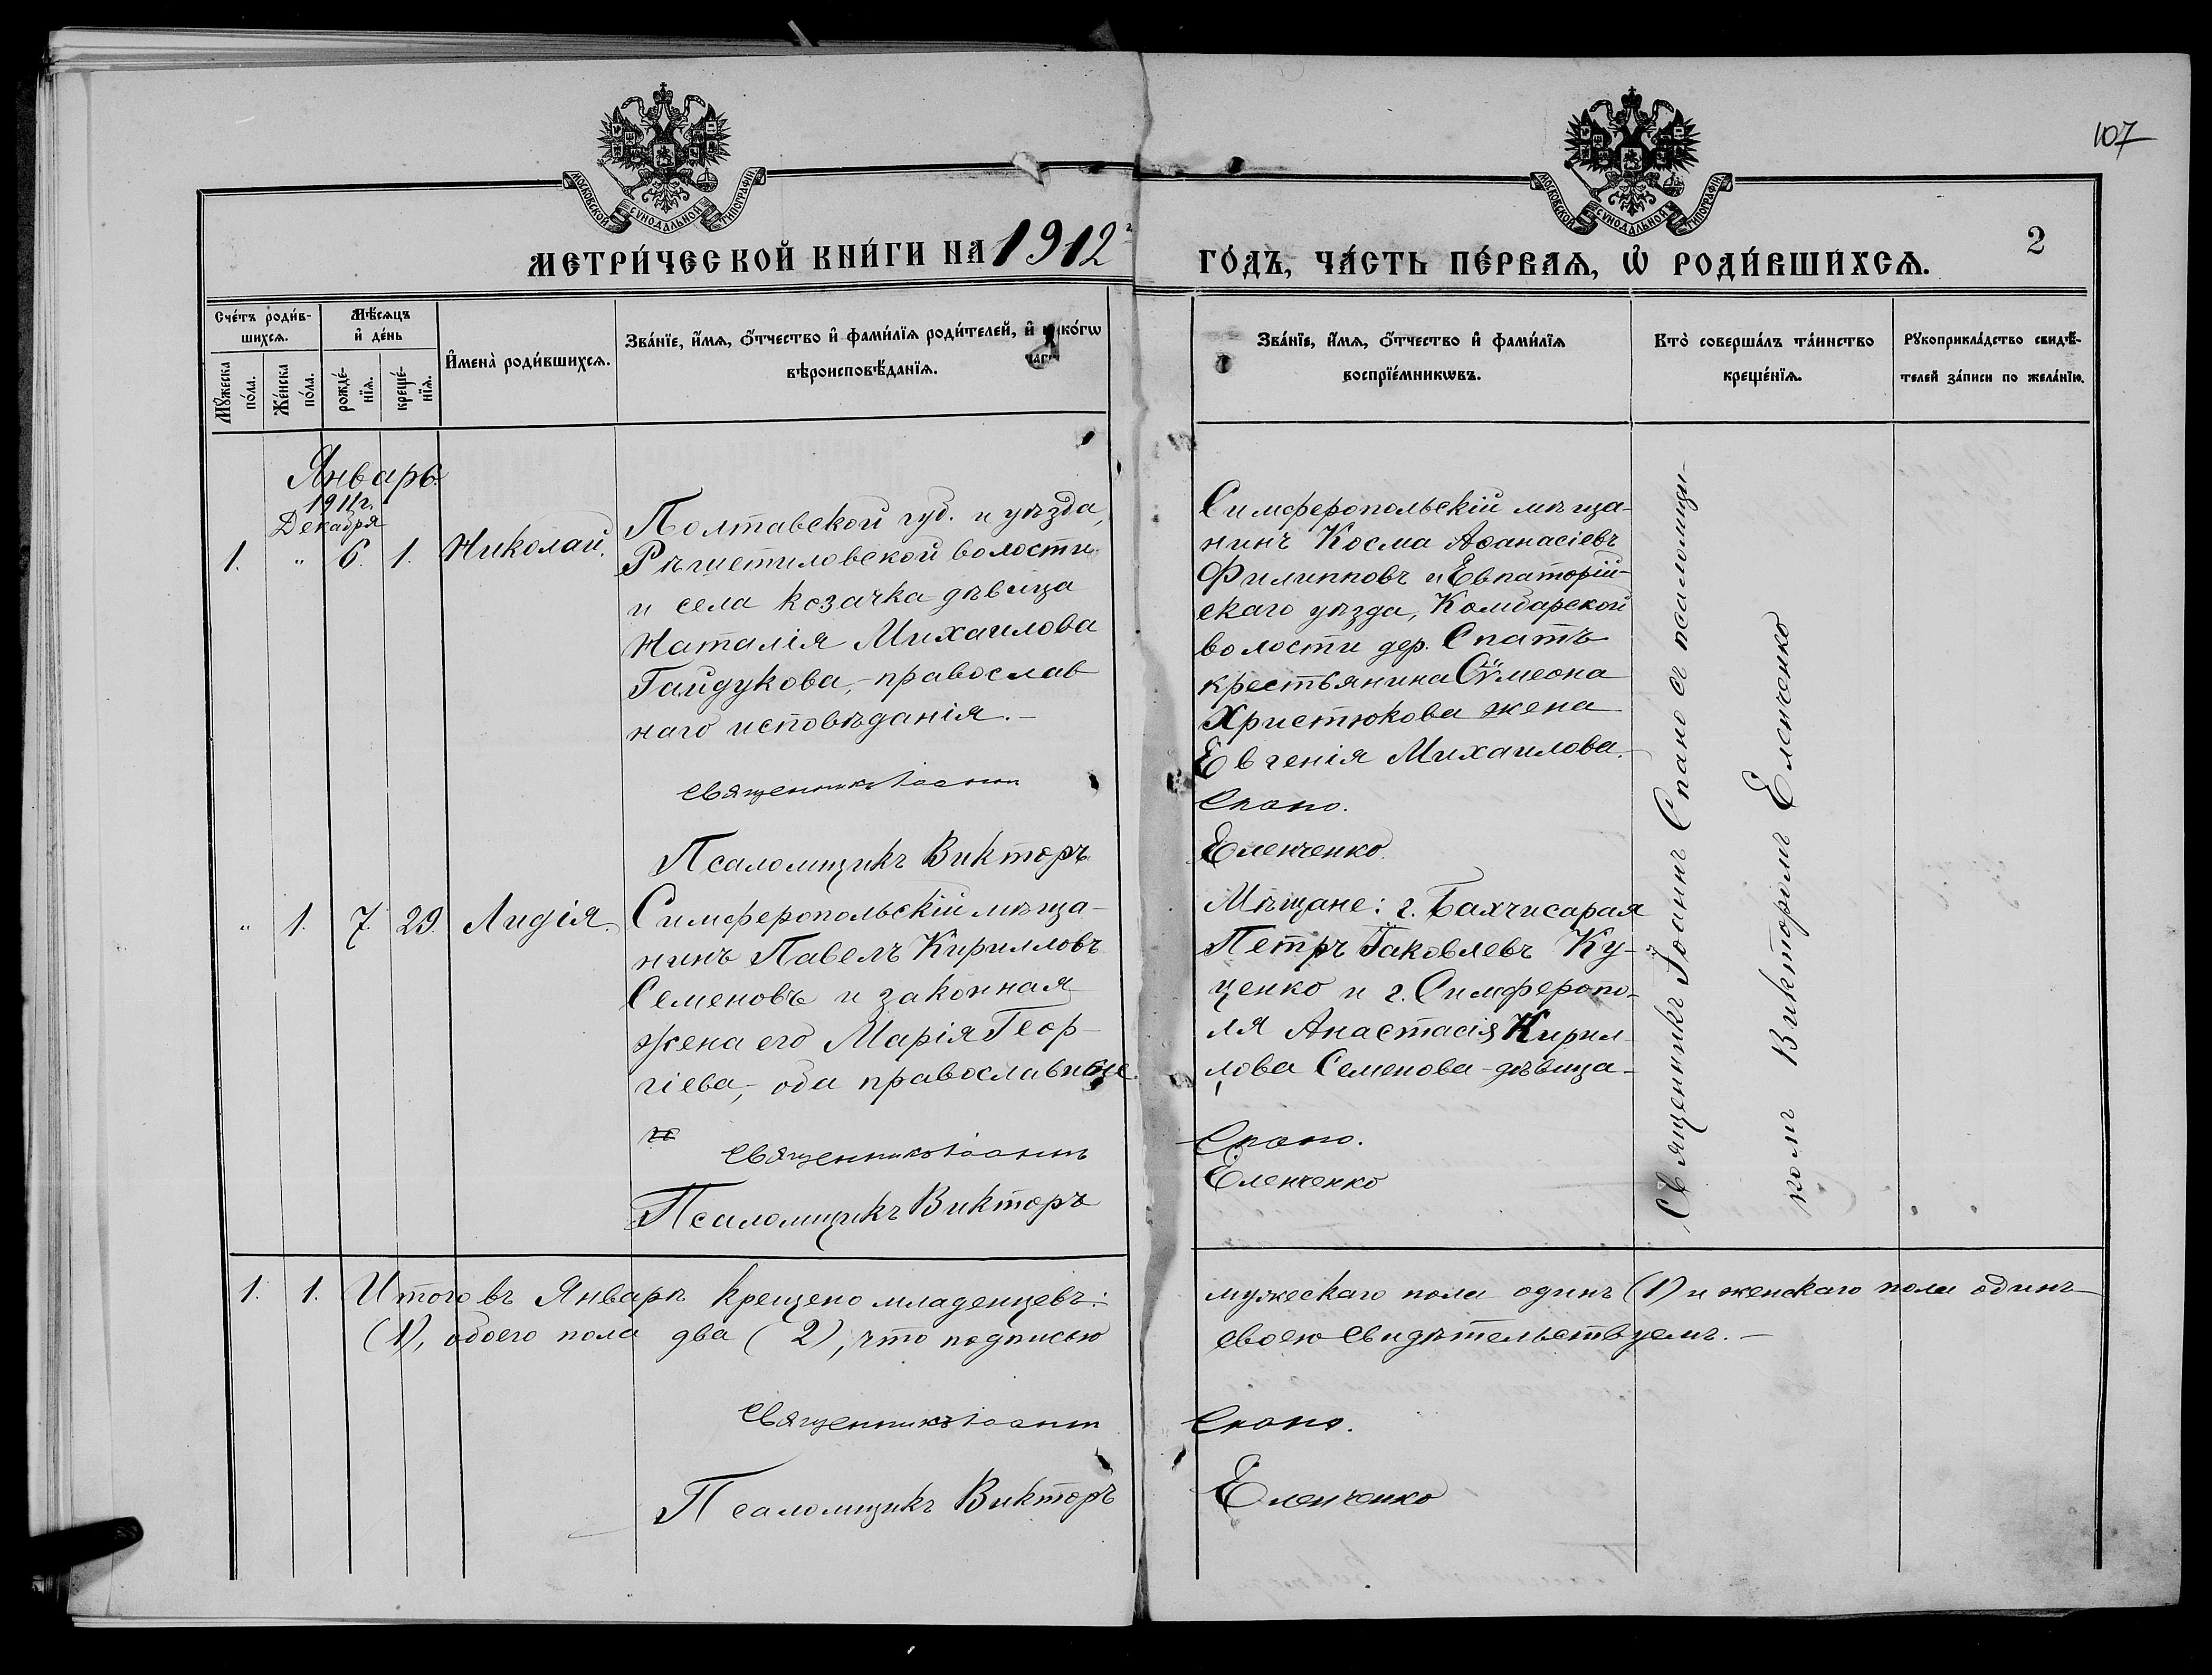 107
МОСКОВСКОЙ СѴНОДАЛЬНОЙ ТИПОГРАФІИ
МОСКОВСКОЙ СѴНОДАЛЬНОЙ ТИПОГРАФІИ
МЕТРИ́ЧЕСКОЙ КНИ́ГИ НА 1912 г
ГО́ДЪ, ЧА́СТЬ ПЕ́РВАѦ, Ѡ҆ РОДИ́ВШИХСѦ.
2
Сче́тъ роди́в-
шихсѧ.
Мꙋ́жеска
по́ла.
Же́нска
по́ла.
Мѣ́сѧцъ
и҆ де́нь
рожде́-
нїѧ.
креще́-
нїѧ.
И҆мена̀ роди́вшихсѧ.
Зва́нїе, и҆́мѧ, ѻ҆́тчество и҆ фами́лїѧ роди́телей, и҆ како́гѡ
вѣроисповѣ́данїѧ.
Зва́нїе, и҆́мѧ, ѻ҆́тчество и҆ фами́лїѧ
воспрїе́мникѡвъ.
Кто̀ соверша́лъ та́инство
креще́нїѧ.
Рꙋкоприкла́дство свидѣ́-
телей за́писи по жела́нїю.
Январь.
1911 г.
Декабря
1. " 6. 1. Николай.
Полтавской губ. и уѣзда,
Рѣшетиловской волости
и села козачка дѣвица
Наталія Михаилова
Гайдукова, - православ
наго исповѣданія. -
Священникъ Іоаннъ
Псаломщикъ Викторъ
Симферопольскій мѣща-
нинъ Косма Аѳанасіевъ
Филипповъ и Евпаторій-
скаго уѣзда, Камбарской
волости дер. Спатъ
крестьянина Сѵмеона
Христюкова жена
Евгенія Михаилова.
Спано.
Еленченко.
Священникъ Іоаннъ Спано съ псаломщи-
комъ Викторомъ Еленченко
" 1. 7. 29. Лидія.
Симферопольскій мѣща-
нинъ Павелъ Кирилловъ
Семеновъ и законная
жена его Марія Геор-
гіева, - оба православные.
Священникъ Іоаннъ
Псаломщикъ Викторъ
Мѣщане: г. Бахчисарая
Петръ Іаковлевъ Ку-
ценко и г. Симферопо-
ля Анастасія Кирил-
лова Семенова - дѣвица -
Спано.
Еленченко
1. 1. Итого въ Январѣ крещено младенцевъ:
мужескаго пола одинъ (1) и женскаго пола одинъ
(1), обоего пола два (2), что подписью
своею свидѣтельствуемъ. -
Священникъ Іоаннъ
Спано.
Псаломщикъ Викторъ
Еленченко